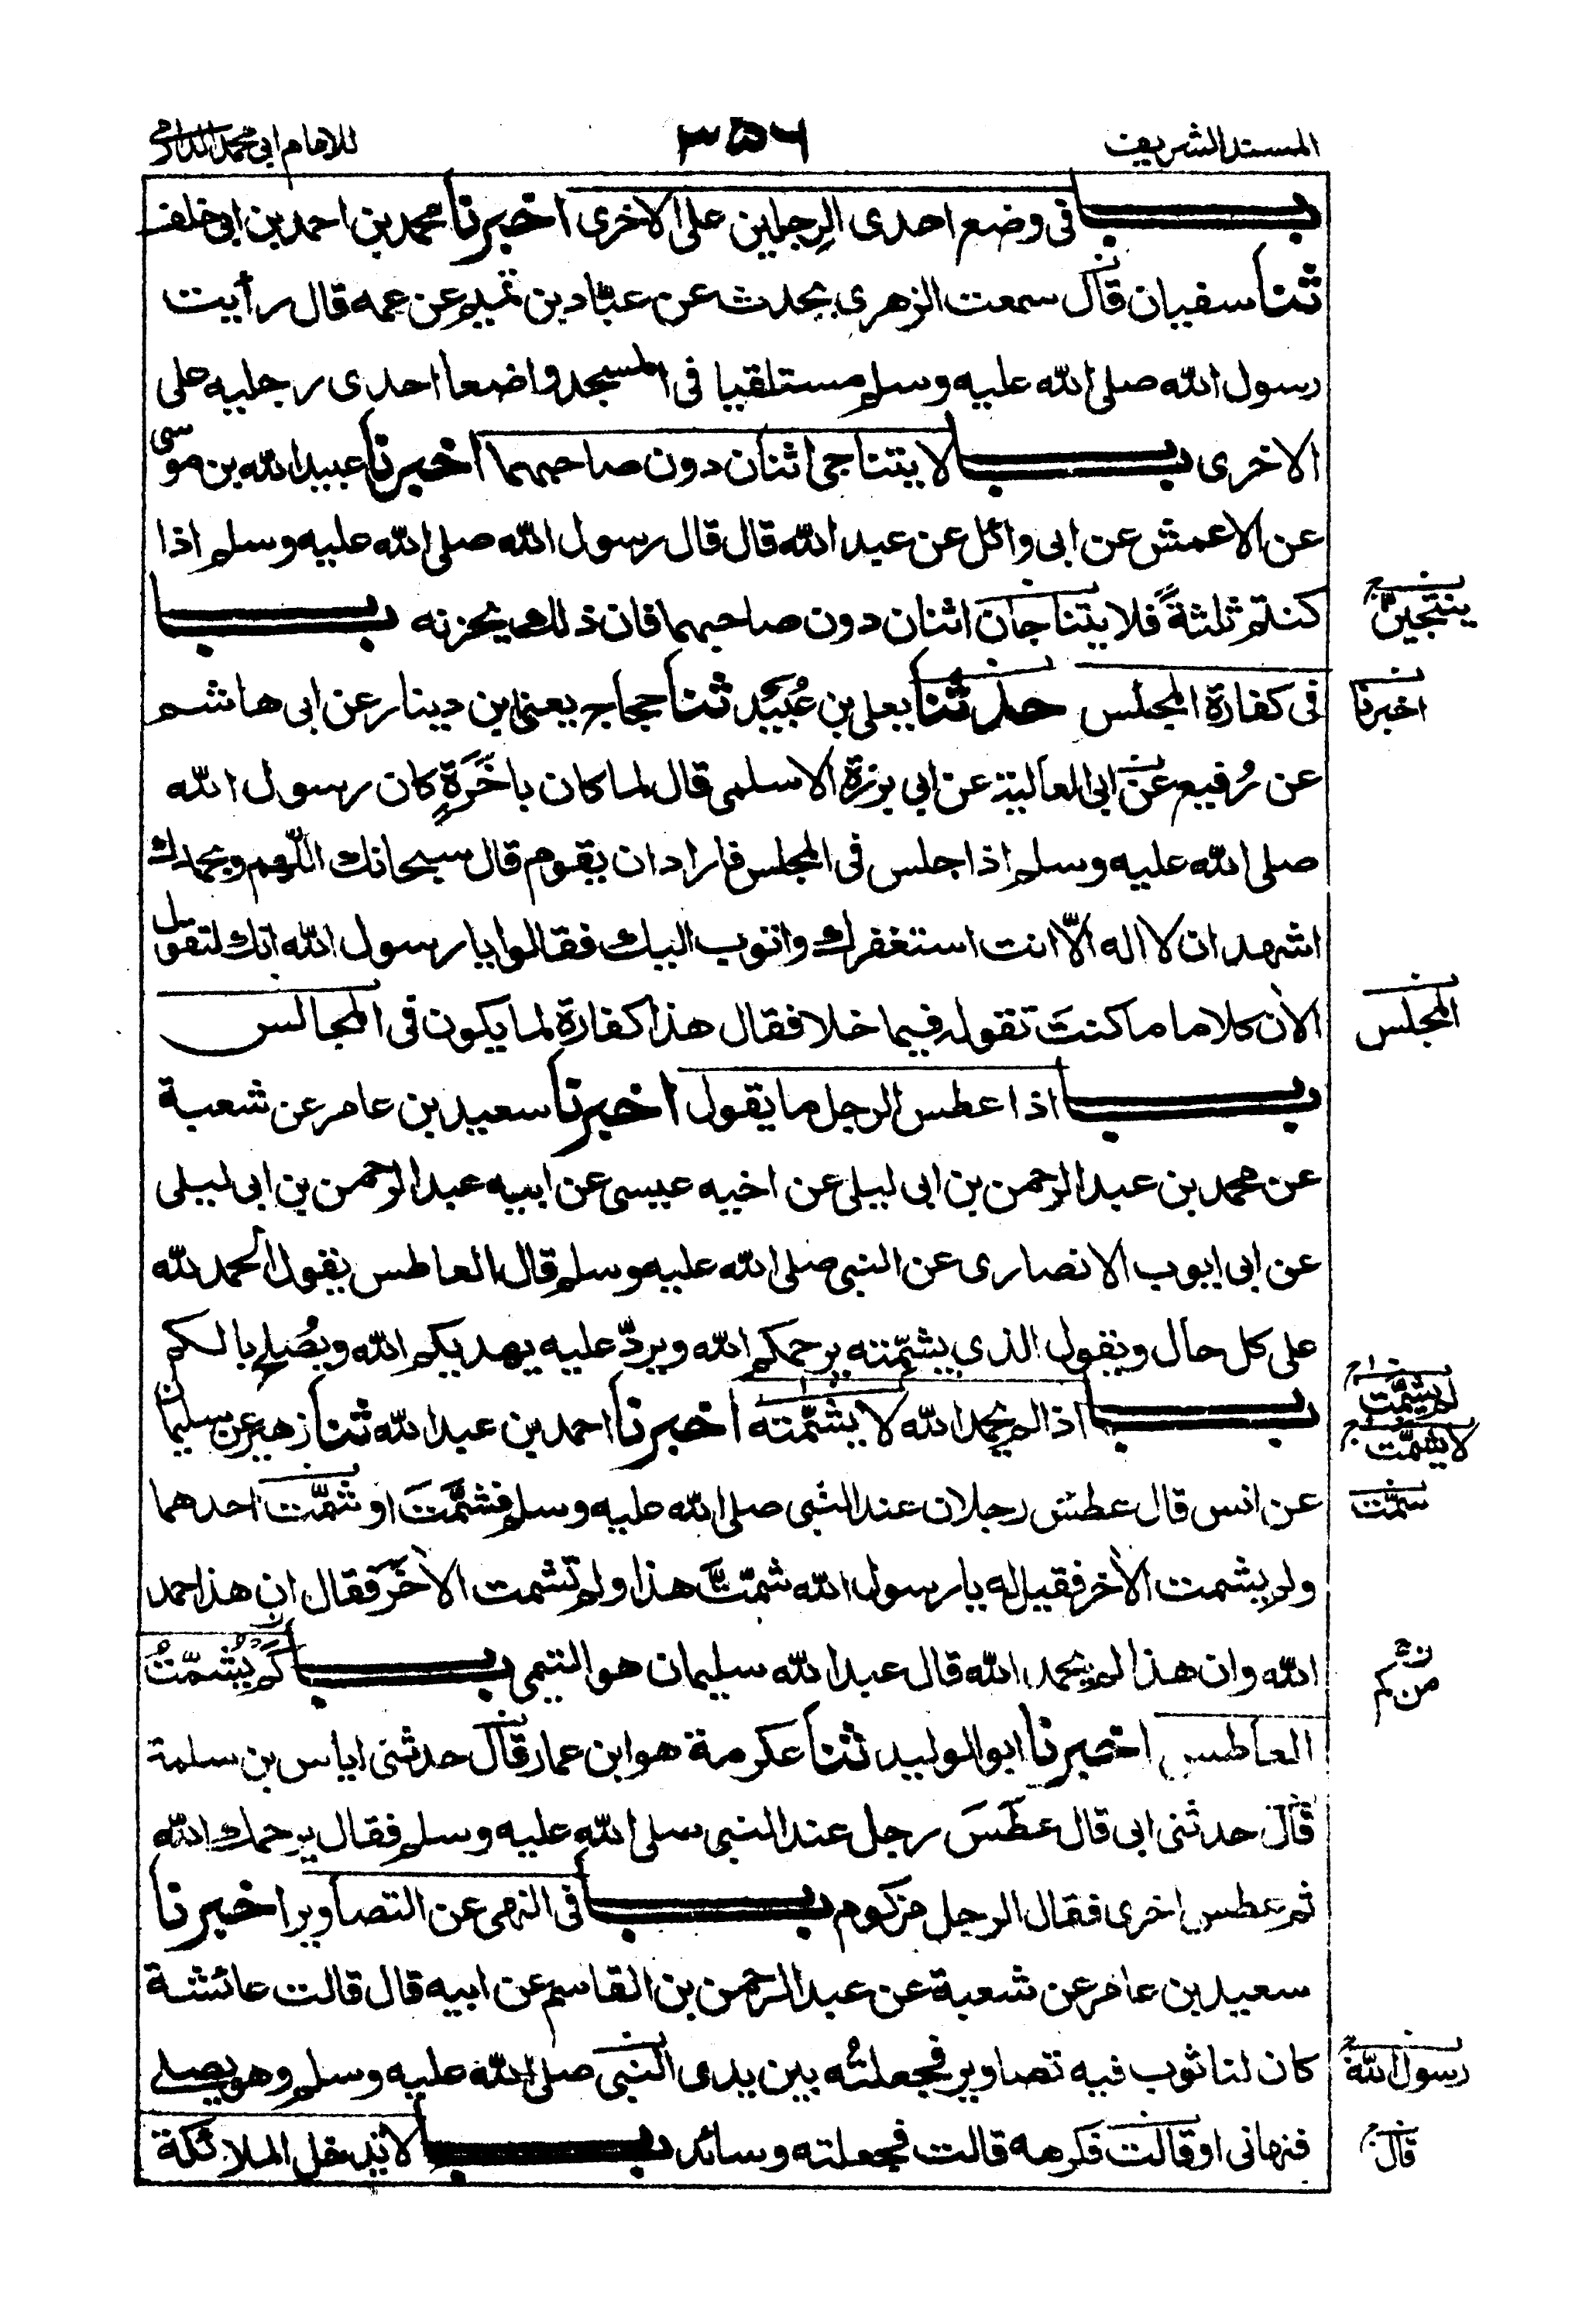 المسند الشريف ٣٥٦ للامام ابى محمد الدارمى
باب فى وضع احدى الرجلين على الاخرى اخبرنا محمد بن احمد بن ابى خلف
ثنا سفيان قال سمعت الزهرى يحدث عن عبّاد بن تميم عن عمه قال رأيت
رسول الله صلى الله عليه وسلم مستلقيا فى المسجد واضعا احدى رجليه على
الاخرى باب لا يتناجى اثنان دون صاحبهما اخبرنا عبيد الله بن موسى
عن الاعمش عن ابى وائل عن عبد الله قال قال رسول الله صلى الله عليه وسلم اذا
كنتم ثلثةً فلا يتناجان اثنان دون صاحبهما فان ذلك يحزنه باب
ينتجين
فى كفارة المجلس حدثنا يعلى بن عُبَيْد ثنا حجاج يعنى ابن دينار عن ابى هاشم
اخبرنا
عن رُفيع عن ابى العالية عن ابى برزة الاسلمى قال لما كان باَخَرَةٍ كان رسول الله
صلى الله عليه وسلم اذا جلس فى المجلس فاراد ان يقوم قال سبحانك اللّهم وبحمدك
اشهد ان لا اله الّا انت استغفرك واتوب اليك فقالوا يا رسول الله انك لتقول
الاٰن كلاما ما كنتَ تقوله فيما خلا فقال هذا كفارة لما يكون فى المجالس
المجلس
باب اذا عطس الرجل ما يقول اخبرنا سعيد بن عامر عن شعبة
عن محمد بن عبد الرحمن بن ابى ليلى عن اخيه عيسى عن ابيه عبد الرحمن بن ابى ليلى
عن ابى ايوب الانصارى عن النبى صلى الله عليه وسلم قال العاطس يقول الحمد لله
على كل حال ويقول الذى يشمّته يرحمكم الله ويردّ عليه يهديكم الله ويُصلح بالكم
باب اذا لم يحمد الله لا يشمّته اخبرنا احمد بن عبد الله ثنا زهير عن سليمان
لم يشمّت
لا يشمّت
عن انس قال عطس رجلان عند النبى صلى الله عليه وسلم فشمَّتَ او شمّت احدهما
سمّت
ولم يشمت الاٰخر فقيل له يا رسول الله شمّتَّ هذا ولم تشمت الاٰخَر فقال ان هذا حمد
الله وان هذا لم يحمد الله قال عبد الله سليمان هو التيمى باب كم يُشمّتُ
من كم
العاطس اخبرنا ابو الوليد ثنا عكرمة هو ابن عمار قال حدثنى اياس بن سلمة
قال حدثنى ابى قال عطَسَ رجل عند النبى صلى الله عليه وسلم فقال يرحمك الله
ثم عطس اخرى فقال الرجل مزكوم باب فى النهى عن التصاوير اخبرنا
سعيد بن عامر عن شعبة عن عبد الرحمن بن القاسم عن ابيه قال قالت عائشة
كان لنا ثوب فيه تصاوير فجعلتُه بين يدى النبى صلى الله عليه وسلم وهو يصلى
رسول الله
فنهانى او قالت فكرهه قالت فجعلته وسائد باب لا تدخل الملائكة
قال